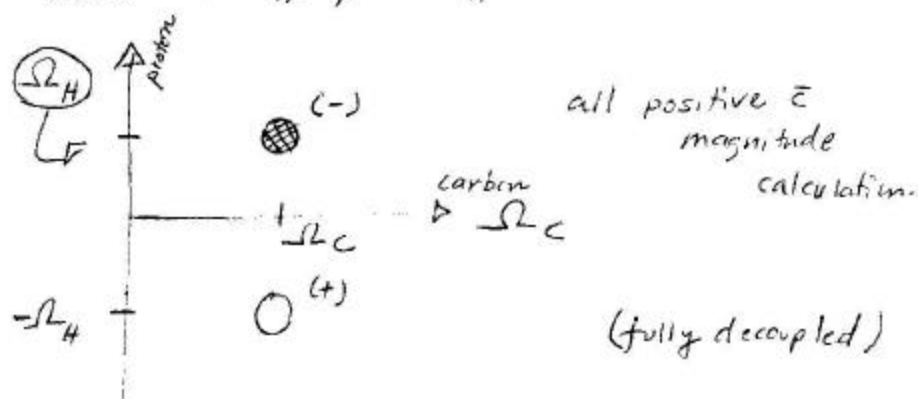 Ω_H
proton
(-)
all positive c̄
magnitude
calculation.
carbon
Ω_C
Ω_C
(+)
-Ω_H
(fully decoupled)